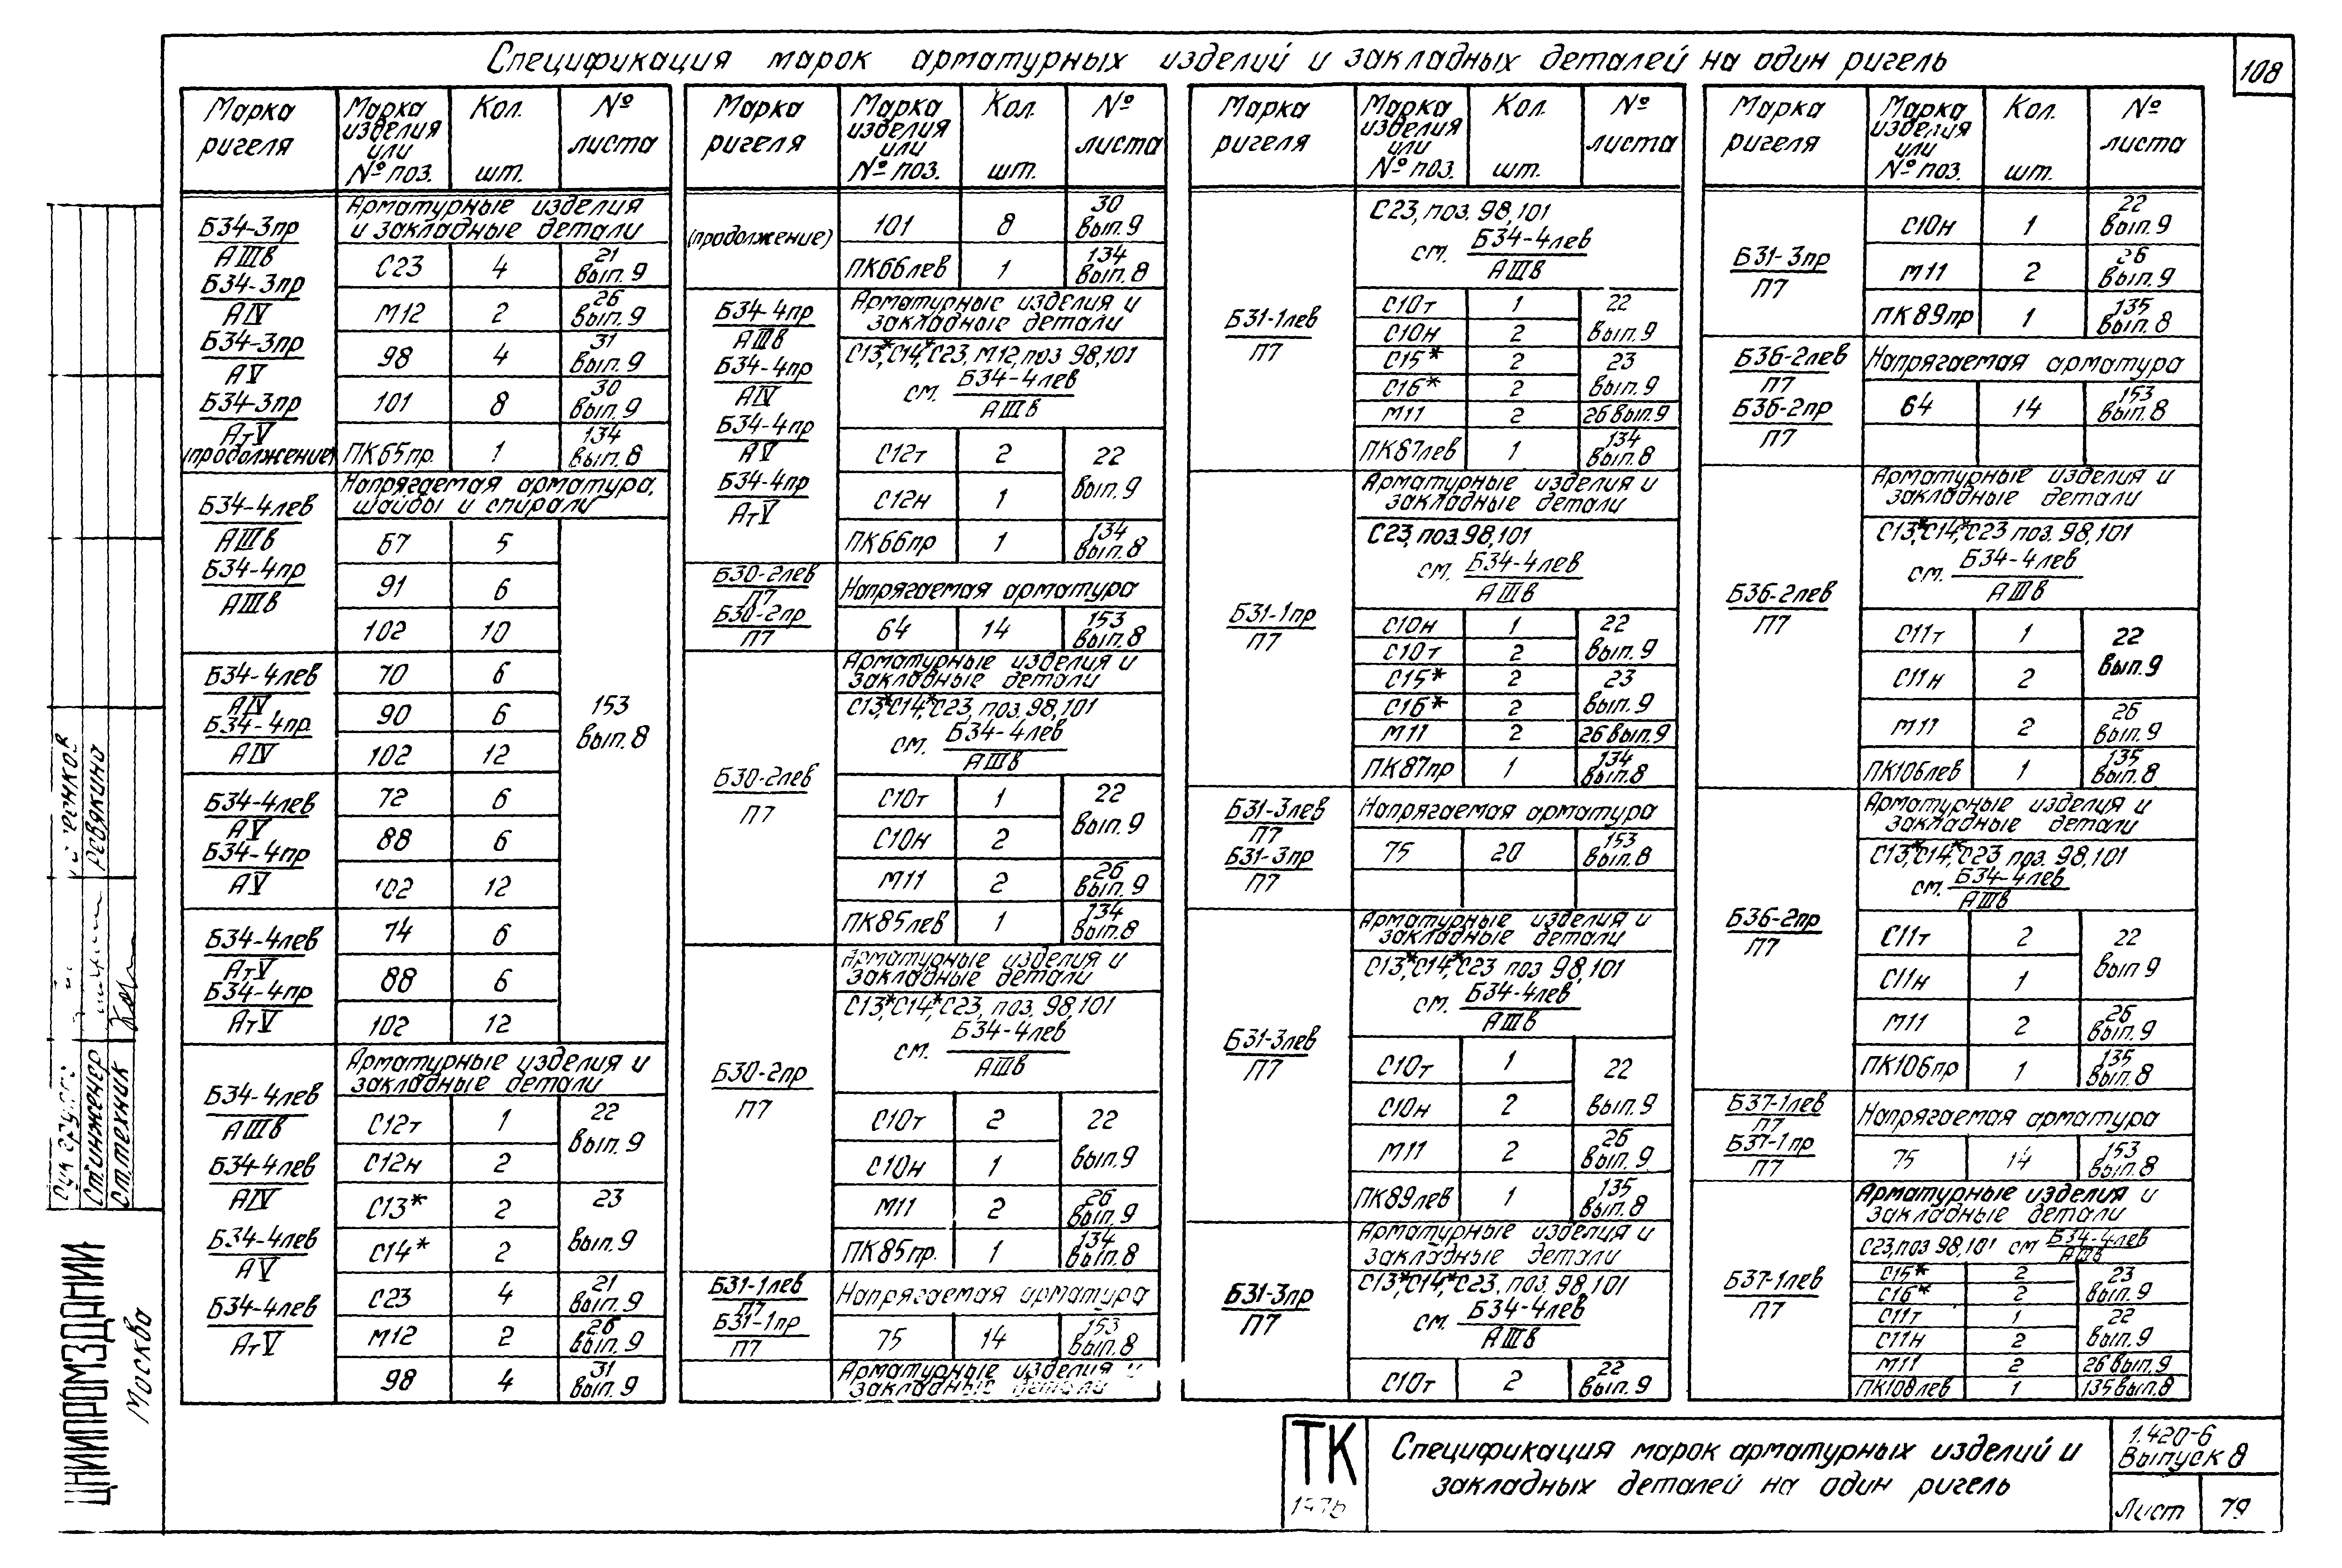 Спецификация марок арматурных изделий и закладных деталей на один ригель
108
Марка ригеля | Марка изделия или № поз. | Кол. шт. | № листа
Б34-3пр
АIIIв
Б34-3пр
АIV
Б34-3пр
АV
Б34-3пр
АтV
(продолжение)
Арматурные изделия и закладные детали
С23 | 4 | 21 вып. 9
М12 | 2 | 26 вып. 9
98 | 4 | 31 вып. 9
101 | 8 | 30 вып. 9
ПК65пр. | 1 | 134 вып. 8
Б34-4лев
АIIIв
Б34-4пр
АIIIв
Напрягаемая арматура, шайбы и спирали
67 | 5 | 153 вып. 8
91 | 6
102 | 10
Б34-4лев
АIV
Б34-4пр.
АIV
70 | 6
90 | 6
102 | 12
Б34-4лев
АV
Б34-4пр
АV
72 | 6
88 | 6
102 | 12
Б34-4лев
АтV
Б34-4пр
АтV
74 | 6
88 | 6
102 | 12
Б34-4лев
АIIIв
Б34-4лев
АIV
Б34-4лев
АV
Б34-4лев
АтV
Арматурные изделия и закладные детали
С12т | 1 | 22 вып. 9
С12н | 2
С13* | 2 | 23 вып. 9
С14* | 2
С23 | 4 | 21 вып. 9
М12 | 2 | 26 вып. 9
98 | 4 | 31 вып. 9
Марка ригеля | Марка изделия или № поз. | Кол. шт. | № листа
(продолжение)
101 | 8 | 30 вып. 9
ПК66лев | 1 | 134 вып. 8
Б34-4пр
АIIIв
Б34-4пр
АIV
Б34-4пр
АV
Б34-4пр
АтV
Арматурные изделия и закладные детали
С13*, С14*, С23, М12, поз 98,101
см. Б34-4лев
АIIIв
С12т | 2 | 22 вып. 9
С12н | 1
ПК66пр | 1 | 134 вып. 8
Б30-2лев
П7
Б30-2пр
П7
Напрягаемая арматура
64 | 14 | 153 вып. 8
Б30-2лев
П7
Арматурные изделия и закладные детали
С13*, С14*, С23, поз. 98,101
см. Б34-4лев
АIIIв
С10т | 1 | 22 вып. 9
С10н | 2
М11 | 2 | 26 вып. 9
ПК85лев | 1 | 134 вып. 8
Б30-2пр
П7
Арматурные изделия и закладные детали
С13*, С14*, С23, поз. 98,101
см. Б34-4лев
АIIIв
С10т | 2 | 22 вып. 9
С10н | 1
М11 | 2 | 26 вып. 9
ПК85пр. | 1 | 134 вып. 8
Б31-1лев
П7
Б31-1пр
П7
Напрягаемая арматура
75 | 14 | 153 вып. 8
Арматурные изделия и закладные детали
Марка ригеля | Марка изделия или № поз. | Кол. шт. | № листа
Б31-1лев
П7
С23, поз. 98,101
см. Б34-4лев
АIIIв
С10т | 1 | 22 вып. 9
С10н | 2
С15* | 2 | 23 вып. 9
С16* | 2
М11 | 2 | 26 вып. 9
ПК87лев | 1 | 134 вып. 8
Б31-1пр
П7
Арматурные изделия и закладные детали
С23, поз. 98,101
см. Б34-4лев
АIIIв
С10н | 1 | 22 вып. 9
С10т | 2
С15* | 2 | 23 вып. 9
С16* | 2
М11 | 2 | 26 вып. 9
ПК87пр | 1 | 134 вып. 8
Б31-3лев
П7
Б31-3пр
П7
Напрягаемая арматура
75 | 20 | 153 вып. 8
Б31-3лев
П7
Арматурные изделия и закладные детали
С13*, С14*, С23 поз 98,101
см. Б34-4лев
АIIIв
С10т | 1 | 22 вып. 9
С10н | 2
М11 | 2 | 26 вып. 9
ПК89лев | 1 | 135 вып. 8
Б31-3пр
П7
Арматурные изделия и закладные детали
С13*, С14*, С23, поз. 98,101
см. Б34-4лев
АIIIв
С10т | 2 | 22 вып. 9
Марка ригеля | Марка изделия или № поз. | Кол. шт. | № листа
Б31-3пр
П7
С10н | 1 | 22 вып. 9
М11 | 2 | 26 вып. 9
ПК89пр | 1 | 135 вып. 8
Б36-2лев
П7
Б36-2пр
П7
Напрягаемая арматура
64 | 14 | 153 вып. 8
Б36-2лев
П7
Арматурные изделия и закладные детали
С13*, С14*, С23 поз. 98,101
см. Б34-4лев
АIIIв
С11т | 1 | 22 вып. 9
С11н | 2
М11 | 2 | 26 вып. 9
ПК106лев | 1 | 135 вып. 8
Б36-2пр
П7
Арматурные изделия и закладные детали
С13*, С14*, С23 поз. 98,101
см. Б34-4лев
АIIIв
С11т | 2 | 22 вып 9
С11н | 1
М11 | 2 | 26 вып. 9
ПК106пр | 1 | 135 вып. 8
Б37-1лев
П7
Б37-1пр
П7
Напрягаемая арматура
75 | 14 | 153 вып. 8
Б37-1лев
П7
Арматурные изделия и закладные детали
С23, поз 98,101 см Б34-4лев
АIIIв
С15* | 2 | 23 вып. 9
С16* | 2
С11т | 1 | 22 вып. 9
С11н | 2
М11 | 2 | 26 вып. 9
ПК108лев | 1 | 135 вып. 8
ТК
Спецификация марок арматурных изделий и
закладных деталей на один ригель
1.420-6
Выпуск 8
Лист 79
Ревякина
Ст.инженер
Ст.техник
ЦНИИПРОМЗДАНИЙ
Москва